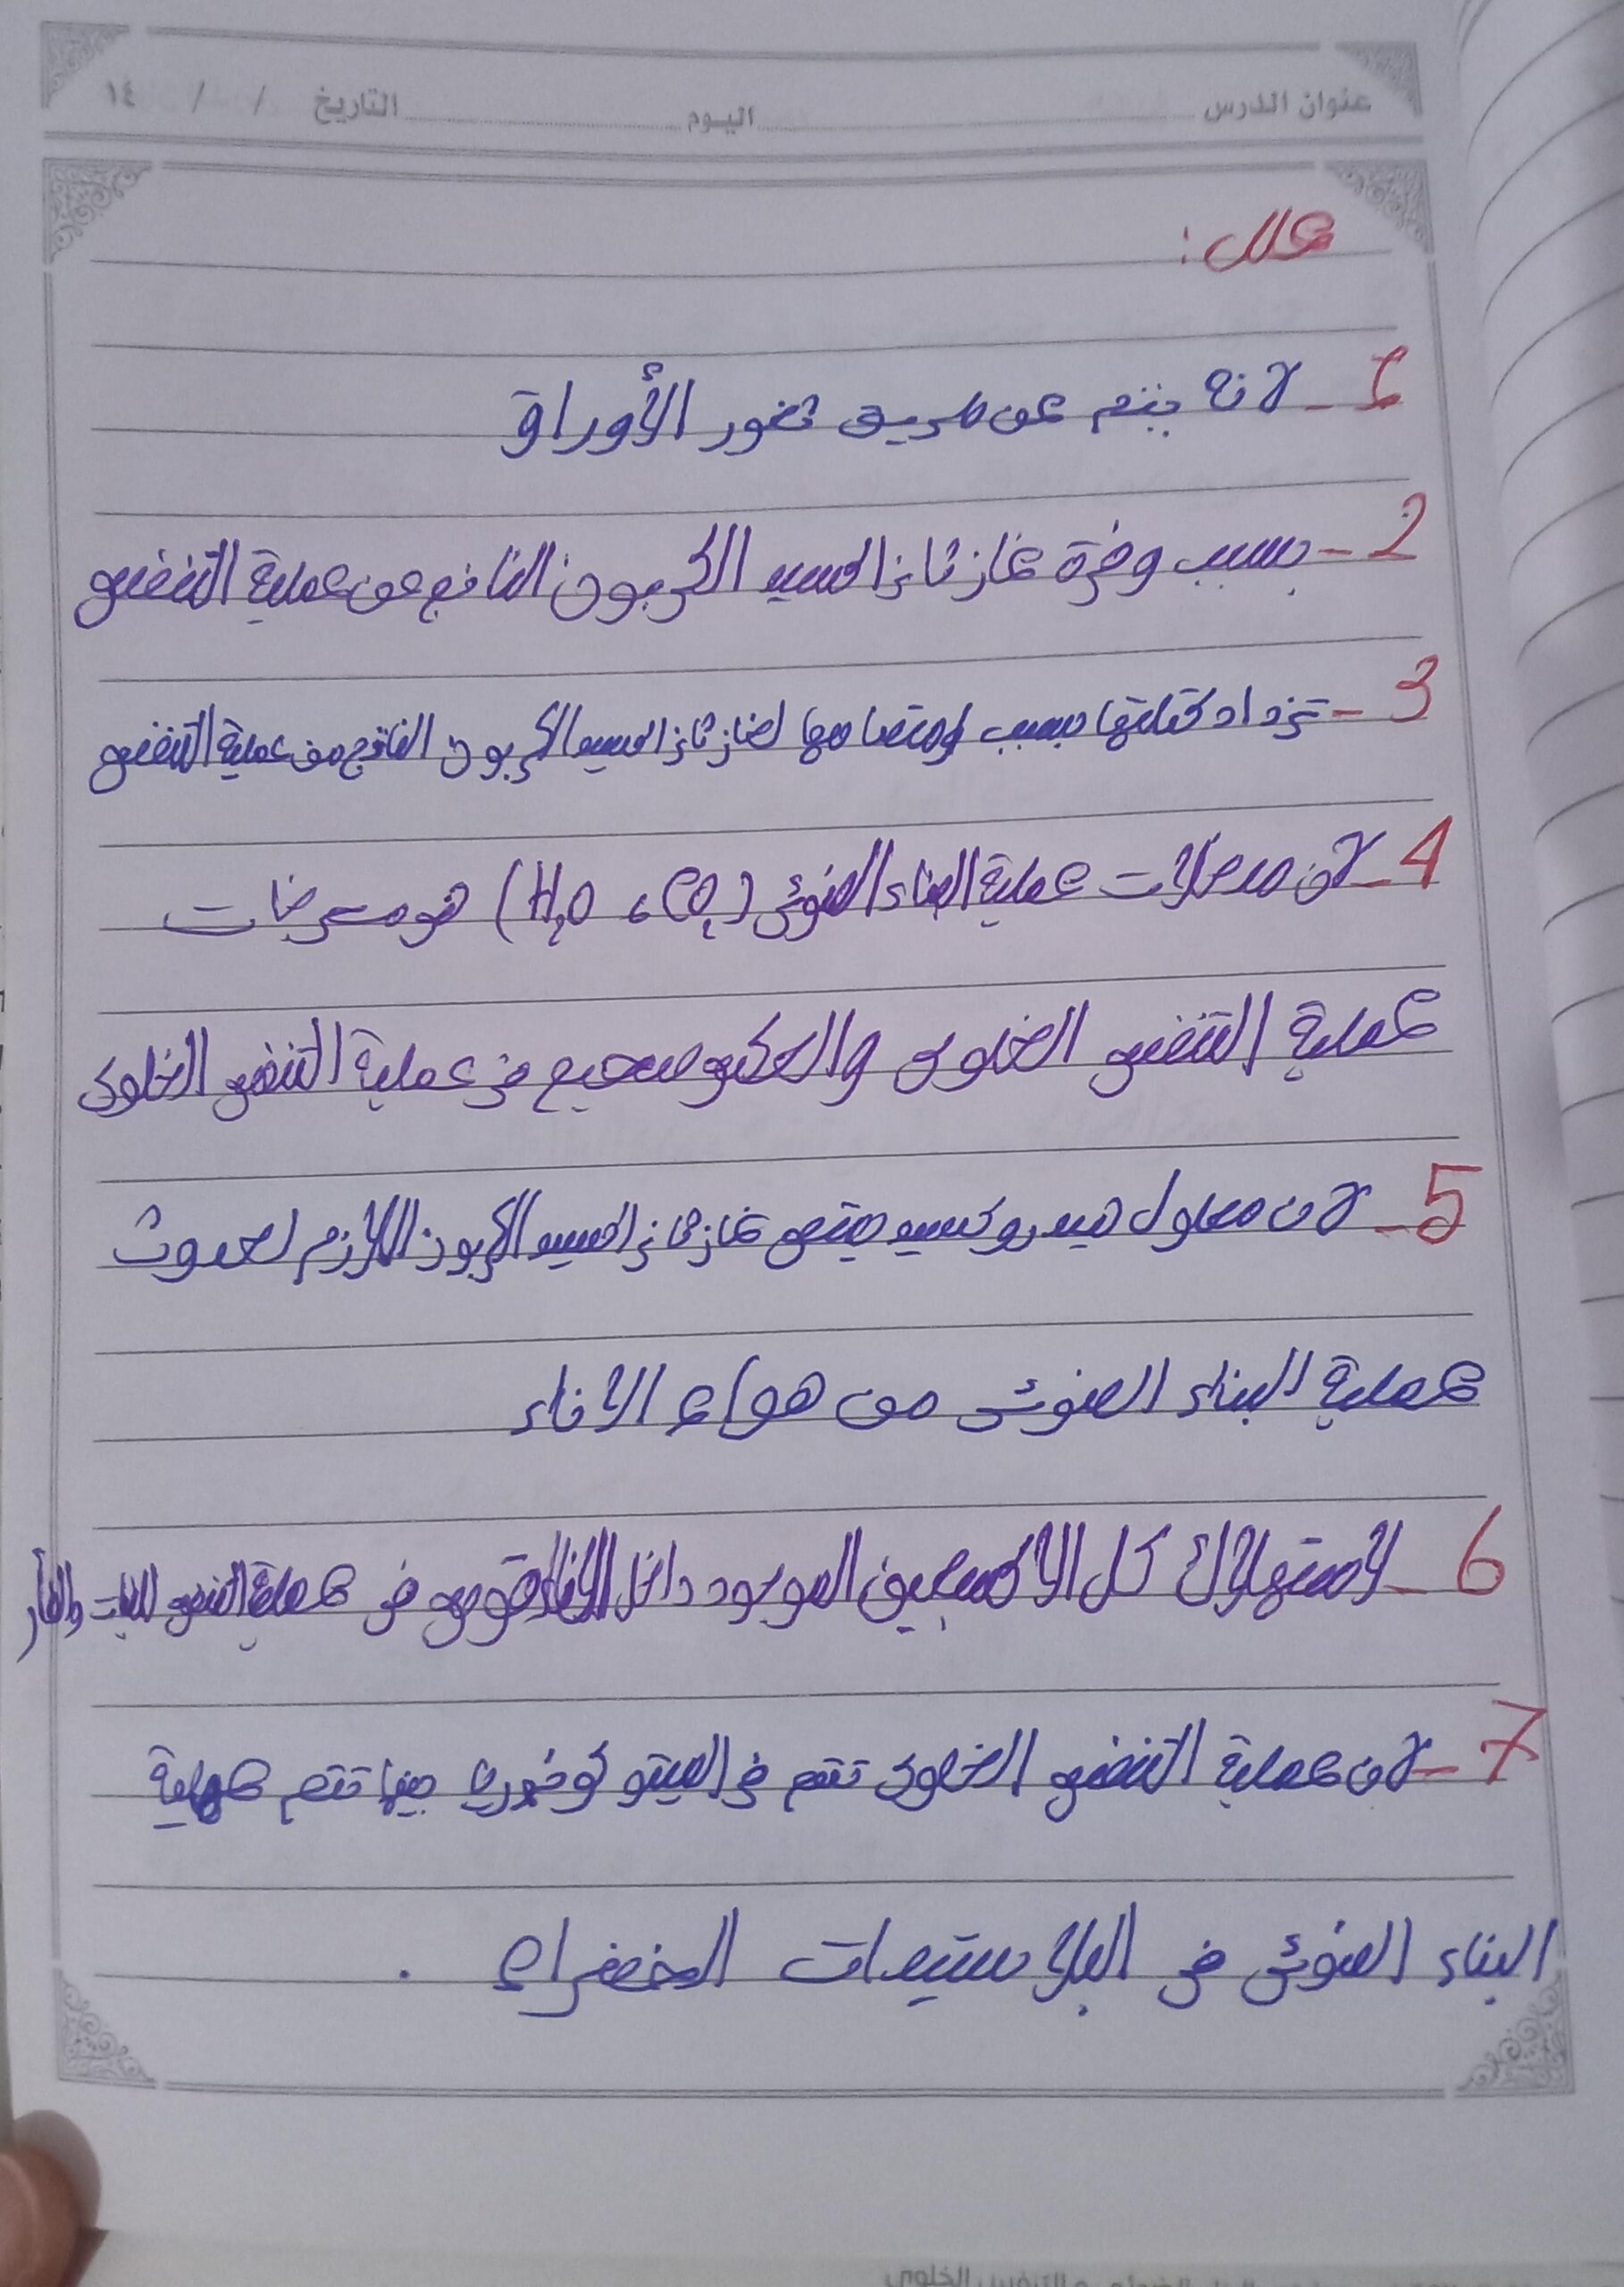 عنوان الدرس اليوم التاريخ / / ١٤
علل :
1 - لانه يتم عن طريق ثغور الأوراق
2 - بسبب وفرة غاز ثاني اكسيد الكربون الناتج عن عملية التنفس
3 - تزداد كتلتها بسبب امتصاصها لغاز ثاني اكسيد الكربون الناتج من عملية التنفس
4 - لان مدخلات عملية البناء الضوئي (CO₂ ، H₂O) هو مخرجات
عملية التنفس الخلوى والعكس صحيح في عملية التنفس الخلوى
5 - لان محلول هيدروكسيد يمتص غاز ثاني اكسيد الكربون اللازم لحدوث
عملية البناء الضوئي من هواء الاناء
6 - لاستهلاك كل الاكسجين الموجود داخل الاناء في عملية التنفس للنبات والفأر
7 - لان عملية التنفس الخلوى تتم في الميتوكوندريا بينما تتم عملية
البناء الضوئي في البلاستيدات الخضراء .